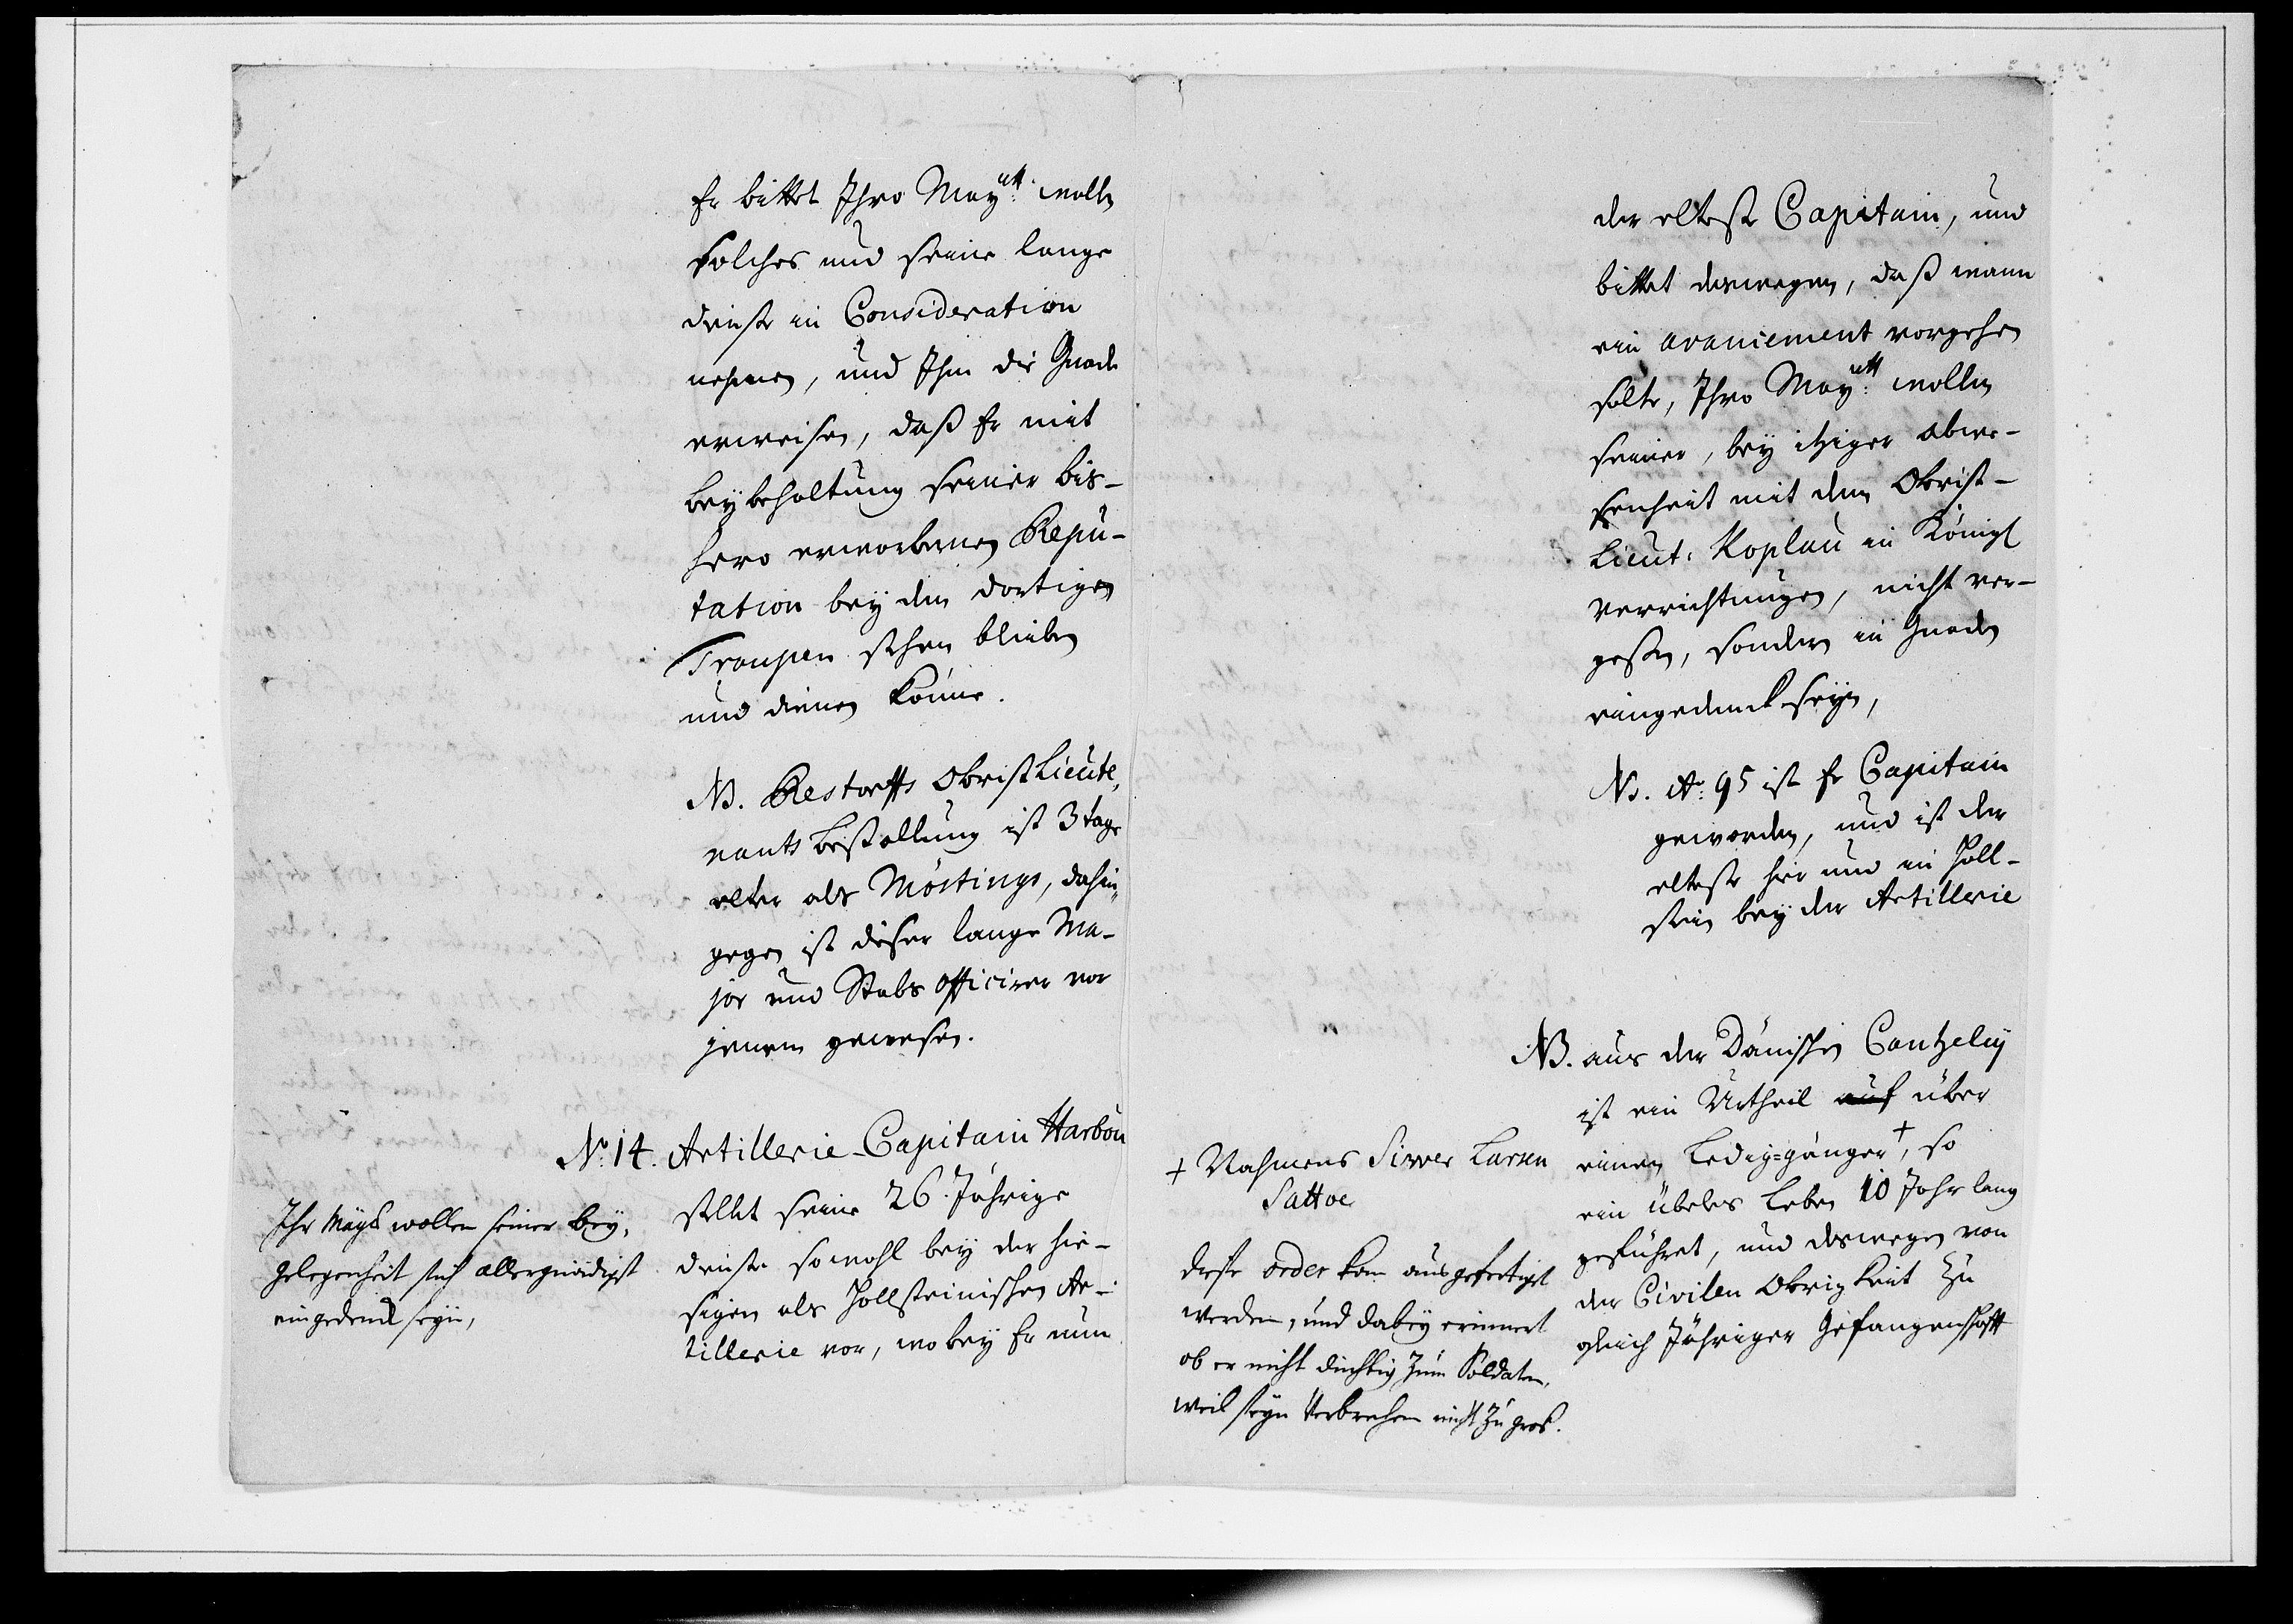 Er bittet Ihro Mayett. wollen
solches und seine lange
dienste in Consideration
nehmen, und Ihm die Gnade
erweisen, daß Er mit
beybehaltung seiner bis-
hero erworbenen Repu-
tation bey den dortigen
Troupen stehen bleiben
und dienen könne.
NB. Restorffs Obrist Lieute,
nants bestallung ist 3 tage
elter als Möstings, dahin,,
gegen ist dieser lange Ma-
jor und Stabs officirer vor
jenem gewesen.
No. 14. Artillerie-Capitain Harbou
stellet seine 26. Jährige
dienste sowohl bey der hie-
sigen als Hollsteinischen Ar-
tillerie vor, wobey Er nun
Ihr Mayt wollen seiner bey,
gelegenheit sich allergnädigst
eingedenck seyn,
der elteste Capitain, und
bittet deswegen, daß wann
ein avanciement vorgehen
solte, Ihro Mayett. wollen
seiner, bey itziger abwe-
senheit mit dem Obrist-
Lieut: Koplau in Königl
verrichtungen, nicht ver-
geßen, sondern in Gnaden
eingedenck seyn,
NB. Ao. 95 ist Er Capitain
geworden, und ist der
elteste hier und in Holl-
stein bey der Artillerie
NB. aus der Dänischen Cantzeley
ist ein Urtheil auf über
einen Ledig-gänger +, so
ein übeles Leben 10 Jahr lang
geführet, und deswegen von
der Civilen Obrigkeit zu
Jähriger Gefangenschafft
+ Nahmens Siwer Larsen
Sattoe
diese order kan ausgefertiget
werden, und dabey erinnert
ob er nicht düchtig zum Soldaten,
weil seyn Verbrechen nicht zu groß.